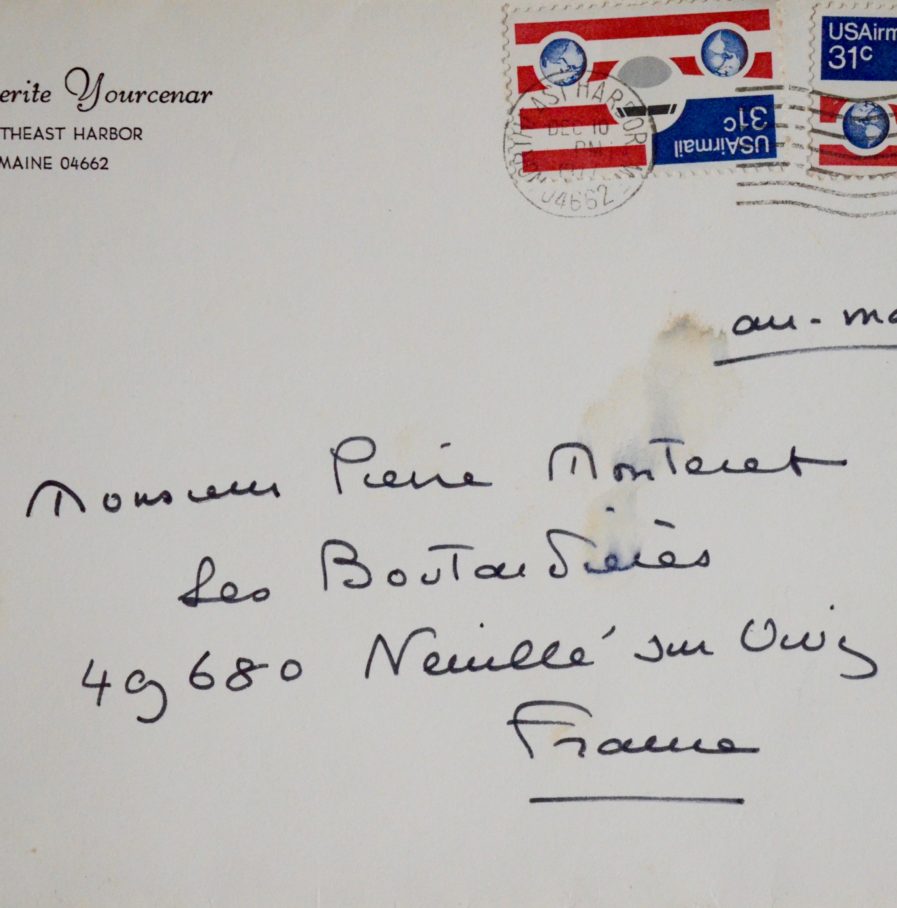 erite Yourcenar
THEAST HARBOR
MAINE 04662
USAirmail
31c
USAirm
31c
HEAST HARBOR
DEC 10
PM
04662
au-ma
Monsieur Pierre Monteret
Les Boutardières
49680 Neuillé sur Vivy
France